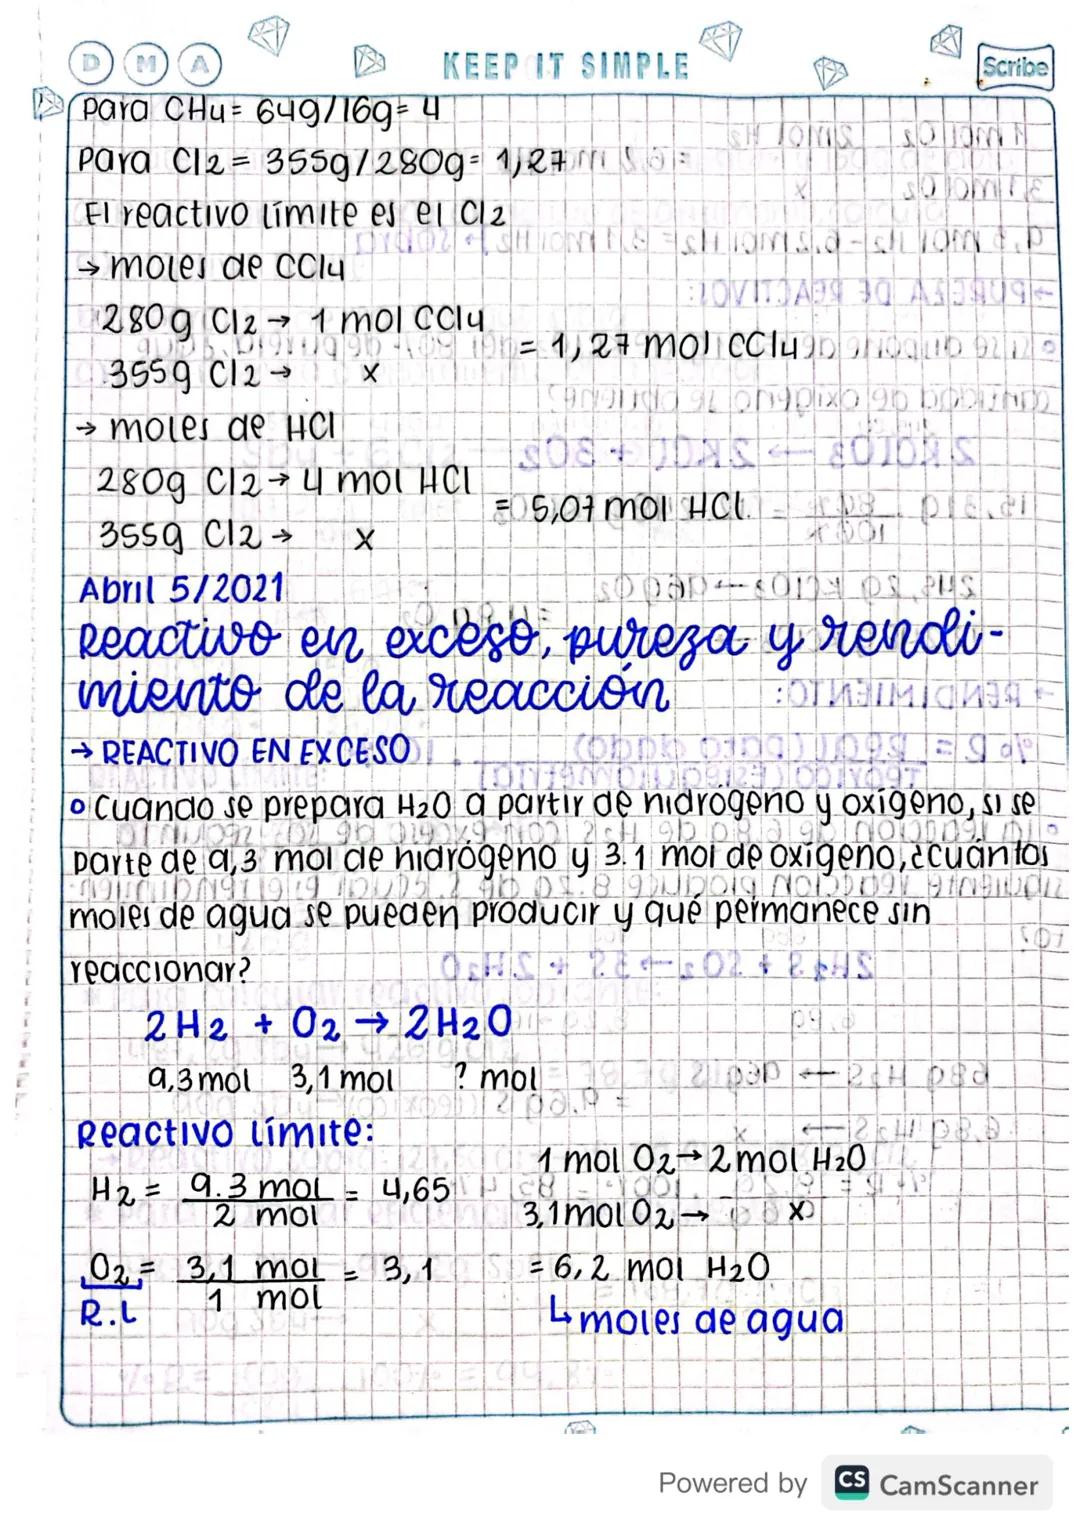 D M A KEEP IT SIMPLE Scribe
Para CH4 = 64g/16g= 4
Para Cl2 = 355g/280g= 1,27
El reactivo límite es el Cl2
→ moles de CCl4
280g Cl2 → 1 mol CCl4
= 1,27 mol CCl4
355g Cl2 → x
→ moles de HCl
280g Cl2 → 4 mol HCl
= 5,07 mol HCl.
355g Cl2 → x
Abril 5/2021
Reactivo en exceso, pureza y rendi-
miento de la reacción
→ REACTIVO EN EXCESO
o Cuando se prepara H2O a partir de hidrógeno y oxígeno, si se
parte de 9,3 mol de hidrógeno y 3.1 mol de oxígeno, ¿cuántos
moles de agua se pueden producir y qué permanece sin
reaccionar?
2H2 + O2 → 2H2O
9,3mol 3,1mol ? mol
Reactivo límite:
H2 = 9.3 mol / 2 mol = 4,65
O2 = 3,1 mol / 1 mol = 3,1
R.L
1 mol O2 → 2mol H2O
3,1mol O2 → x
= 6,2 mol H2O
↳ moles de agua
Powered by CS CamScanner